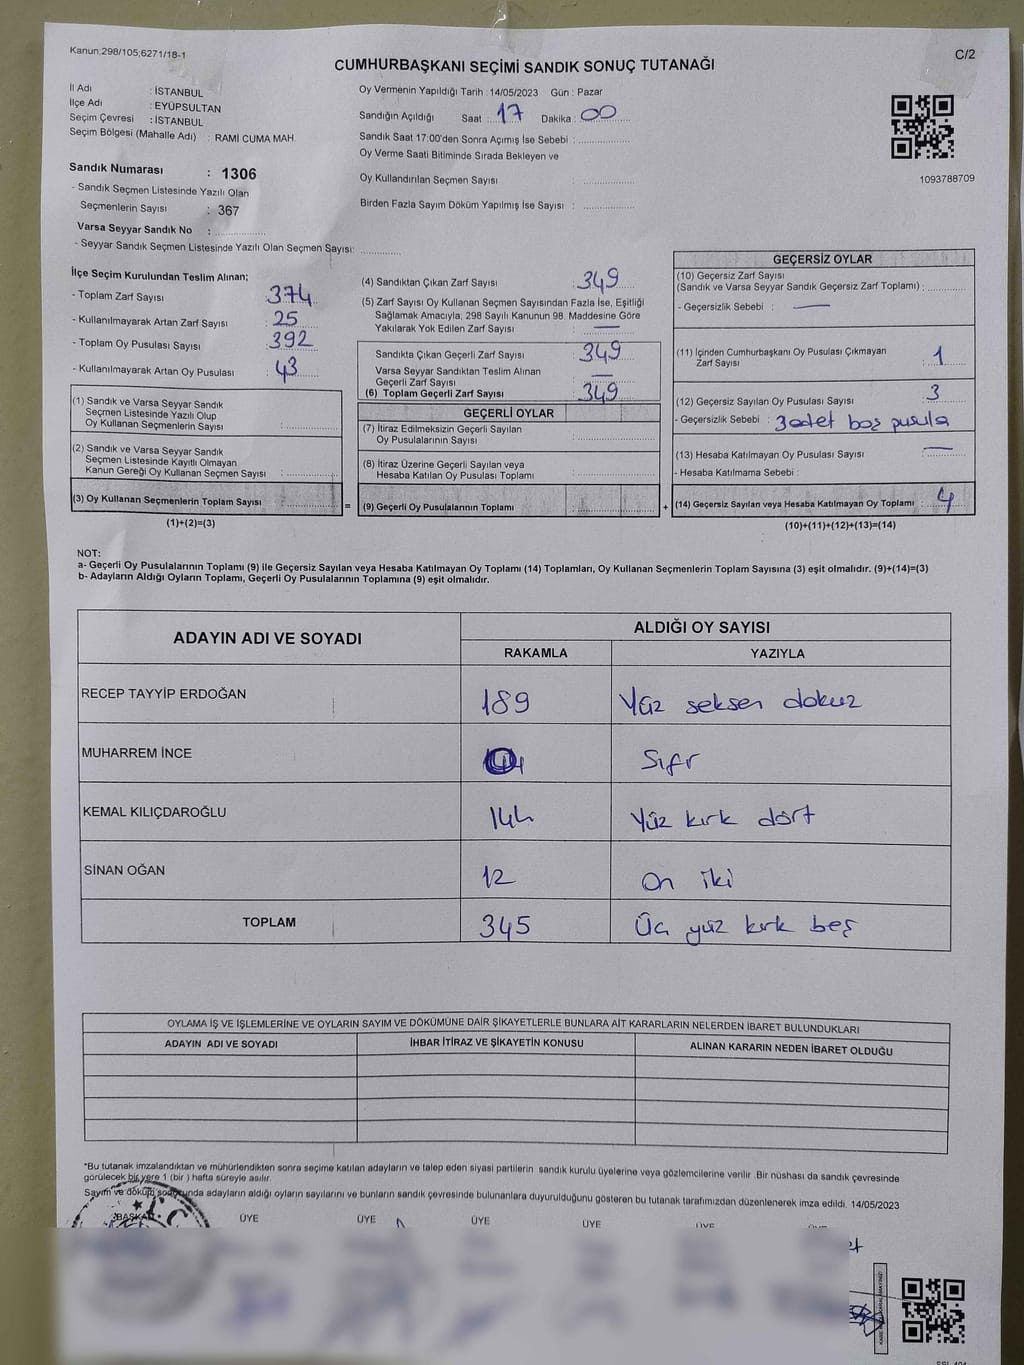 Kanun;298/105;6271/18-1
C/2
CUMHURBAŞKANI SEÇİMİ SANDIK SONUÇ TUTANAĞI
İl Adı : İSTANBUL
İlçe Adı : EYÜPSULTAN
Seçim Çevresi : İSTANBUL
Seçim Bölgesi (Mahalle Adı) : RAMİ CUMA MAH.
Sandık Numarası : 1306
- Sandık Seçmen Listesinde Yazılı Olan
Seçmenlerin Sayısı : 367
Varsa Seyyar Sandık No :
- Seyyar Sandık Seçmen Listesinde Yazılı Olan Seçmen Sayısı:
Oy Vermenin Yapıldığı Tarih : 14/05/2023 Gün : Pazar
Sandığın Açıldığı Saat : 17 Dakika : 00
Sandık Saat 17:00'den Sonra Açımış İse Sebebi :
Oy Verme Saati Bitiminde Sırada Bekleyen ve
Oy Kullandırılan Seçmen Sayısı :
Birden Fazla Sayım Döküm Yapılmış İse Sayısı :
1093788709
İlçe Seçim Kurulundan Teslim Alınan;
- Toplam Zarf Sayısı : 374
- Kullanılmayarak Artan Zarf Sayısı : 25
- Toplam Oy Pusulası Sayısı : 392
- Kullanılmayarak Artan Oy Pusulası : 43
(1) Sandık ve Varsa Seyyar Sandık
Seçmen Listesinde Yazılı Olup
Oy Kullanan Seçmenlerin Sayısı :
(2) Sandık ve Varsa Seyyar Sandık
Seçmen Listesinde Kayıtlı Olmayan
Kanun Gereği Oy Kullanan Seçmen Sayısı :
(3) Oy Kullanan Seçmenlerin Toplam Sayısı : =
(1)+(2)=(3)
(4) Sandıktan Çıkan Zarf Sayısı : 349
(5) Zarf Sayısı Oy Kullanan Seçmen Sayısından Fazla İse, Eşitliği
Sağlamak Amacıyla, 298 Sayılı Kanunun 98. Maddesine Göre
Yakılarak Yok Edilen Zarf Sayısı : —
Sandıkta Çıkan Geçerli Zarf Sayısı : 349
Varsa Seyyar Sandıktan Teslim Alınan
Geçerli Zarf Sayısı : —
(6) Toplam Geçerli Zarf Sayısı : 349
GEÇERLİ OYLAR
(7) İtiraz Edilmeksizin Geçerli Sayılan
Oy Pusulalarının Sayısı :
(8) İtiraz Üzerine Geçerli Sayılan veya
Hesaba Katılan Oy Pusulası Toplamı :
(9) Geçerli Oy Pusulalarının Toplamı : +
GEÇERSİZ OYLAR
(10) Geçersiz Zarf Sayısı
(Sandık ve Varsa Seyyar Sandık Geçersiz Zarf Toplamı) :
- Geçersizlik Sebebi : —
(11) İçinden Cumhurbaşkanı Oy Pusulası Çıkmayan
Zarf Sayısı : 1
(12) Geçersiz Sayılan Oy Pusulası Sayısı : 3
- Geçersizlik Sebebi : 3 adet boş pusula
(13) Hesaba Katılmayan Oy Pusulası Sayısı : —
- Hesaba Katılmama Sebebi :
(14) Geçersiz Sayılan veya Hesaba Katılmayan Oy Toplamı : 4
(10)+(11)+(12)+(13)=(14)
NOT:
a- Geçerli Oy Pusulalarının Toplamı (9) ile Geçersiz Sayılan veya Hesaba Katılmayan Oy Toplamı (14) Toplamları, Oy Kullanan Seçmenlerin Toplam Sayısına (3) eşit olmalıdır. (9)+(14)=(3)
b- Adayların Aldığı Oyların Toplamı, Geçerli Oy Pusulalarının Toplamına (9) eşit olmalıdır.
ADAYIN ADI VE SOYADI ALDIĞI OY SAYISI
RAKAMLA YAZIYLA
RECEP TAYYİP ERDOĞAN 189 Yüz seksen dokuz
MUHARREM İNCE Sıfır
KEMAL KILIÇDAROĞLU 144 Yüz kırk dört
SİNAN OĞAN 12 On iki
TOPLAM 345 Üç yüz kırk beş
OYLAMA İŞ VE İŞLEMLERİNE VE OYLARIN SAYIM VE DÖKÜMÜNE DAİR ŞİKAYETLERLE BUNLARA AİT KARARLARIN NELERDEN İBARET BULUNDUKLARI
ADAYIN ADI VE SOYADI İHBAR İTİRAZ VE ŞİKAYETİN KONUSU ALINAN KARARIN NEDEN İBARET OLDUĞU
*Bu tutanak imzalandıktan ve mühürlendikten sonra seçime katılan adayların ve talep eden siyasi partilerin sandık kurulu üyelerine veya gözlemcilerine verilir. Bir nüshası da sandık çevresinde
görülecek bir yere 1 (bir) hafta süreyle asılır.
Sayım ve döküm sonucunda adayların aldığı oyların sayılarını ve bunların sandık çevresinde bulunanlara duyurulduğunu gösteren bu tutanak tarafımızdan düzenlenerek imza edildi. 14/05/2023
BAŞKAN ÜYE ÜYE ÜYE ÜYE ÜYE ÜYE